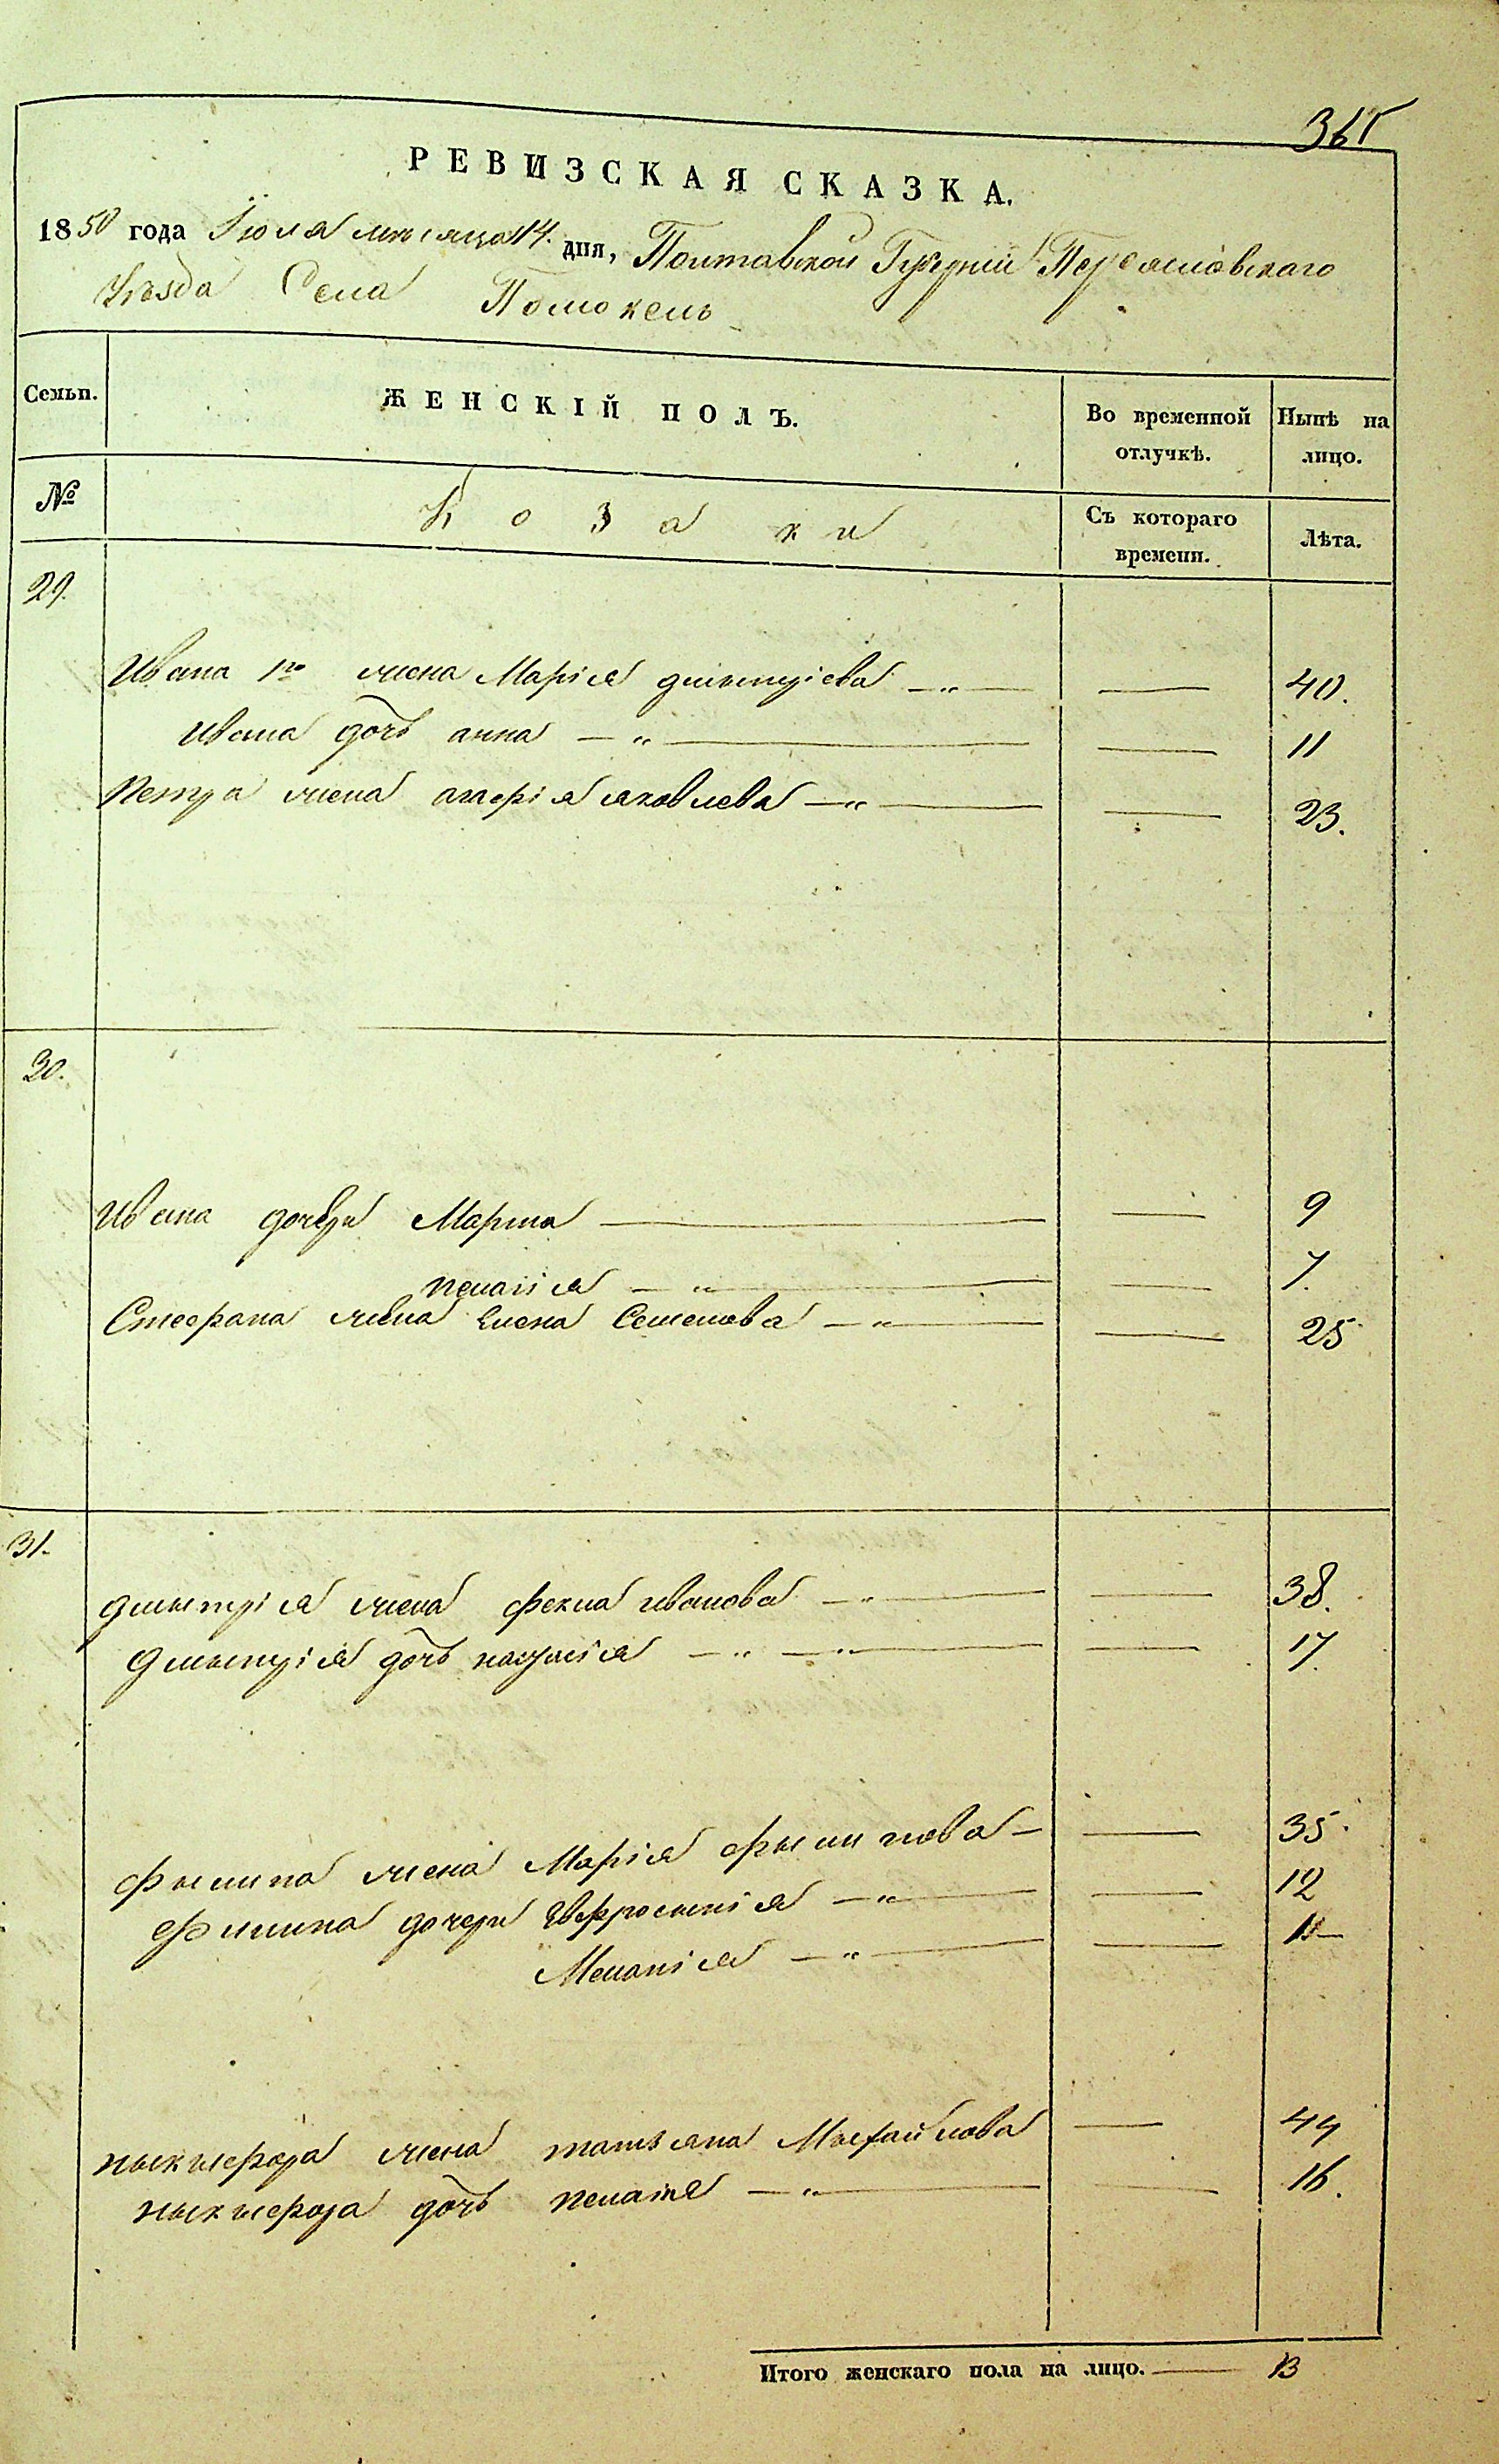 365
РЕВИЗСКАЯ СКАЗКА.
1850 года Іюля мѣсяца 14. дня, Полтавской Губерніи Переяславскаго
Уѣзда Села Помоклей
Семьи. ЖЕНСКІЙ ПОЛЪ. Во временной отлучкѣ. Нынѣ на лицо.
№ Козаки Съ котораго времени. Лѣта.
29.
Ивана 1го жена Марія дмытріева — „ — 40.
Ивана дочь анна — „ — 11
Петра жена агафія яковлева — „ — 23.
30.
Ивана дочери Марфа 9
пелагія — „ — 7.
Стефана жена Елена Семенова — „ — 25
31.
дмытрія жена фекла иванова — „ — 38.
дмытрія дочь настасія — „ — „ — 17.
Фылипа жена Марія Фылипова — 35.
Филипа дочери Евфросинія — „ — 12
Меланія — „ — 11
ныкыфора жена татіяна Мыхайлова 44
ныкыфора дочь пелагія — „ — 16.
Итого женскаго пола на лицо. — 13